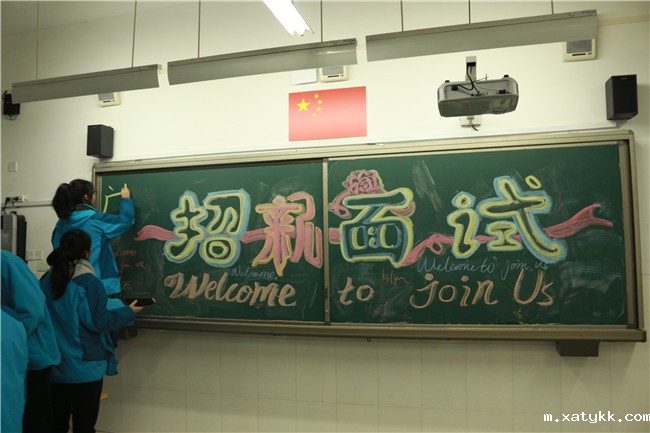 招新面试
Welcome Welcome to join us
Welcome to join Us
m.xatykk.com